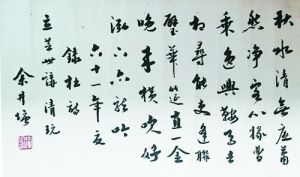 秋水清無底蕭
然净客心掾曹
乘逸興鞍馬去
相尋能吏逢聯
璧華筵直一金
晚來橫吹好
泓下亦龍吟
六十一年夏
錄杜詩
世講清玩
余井塘